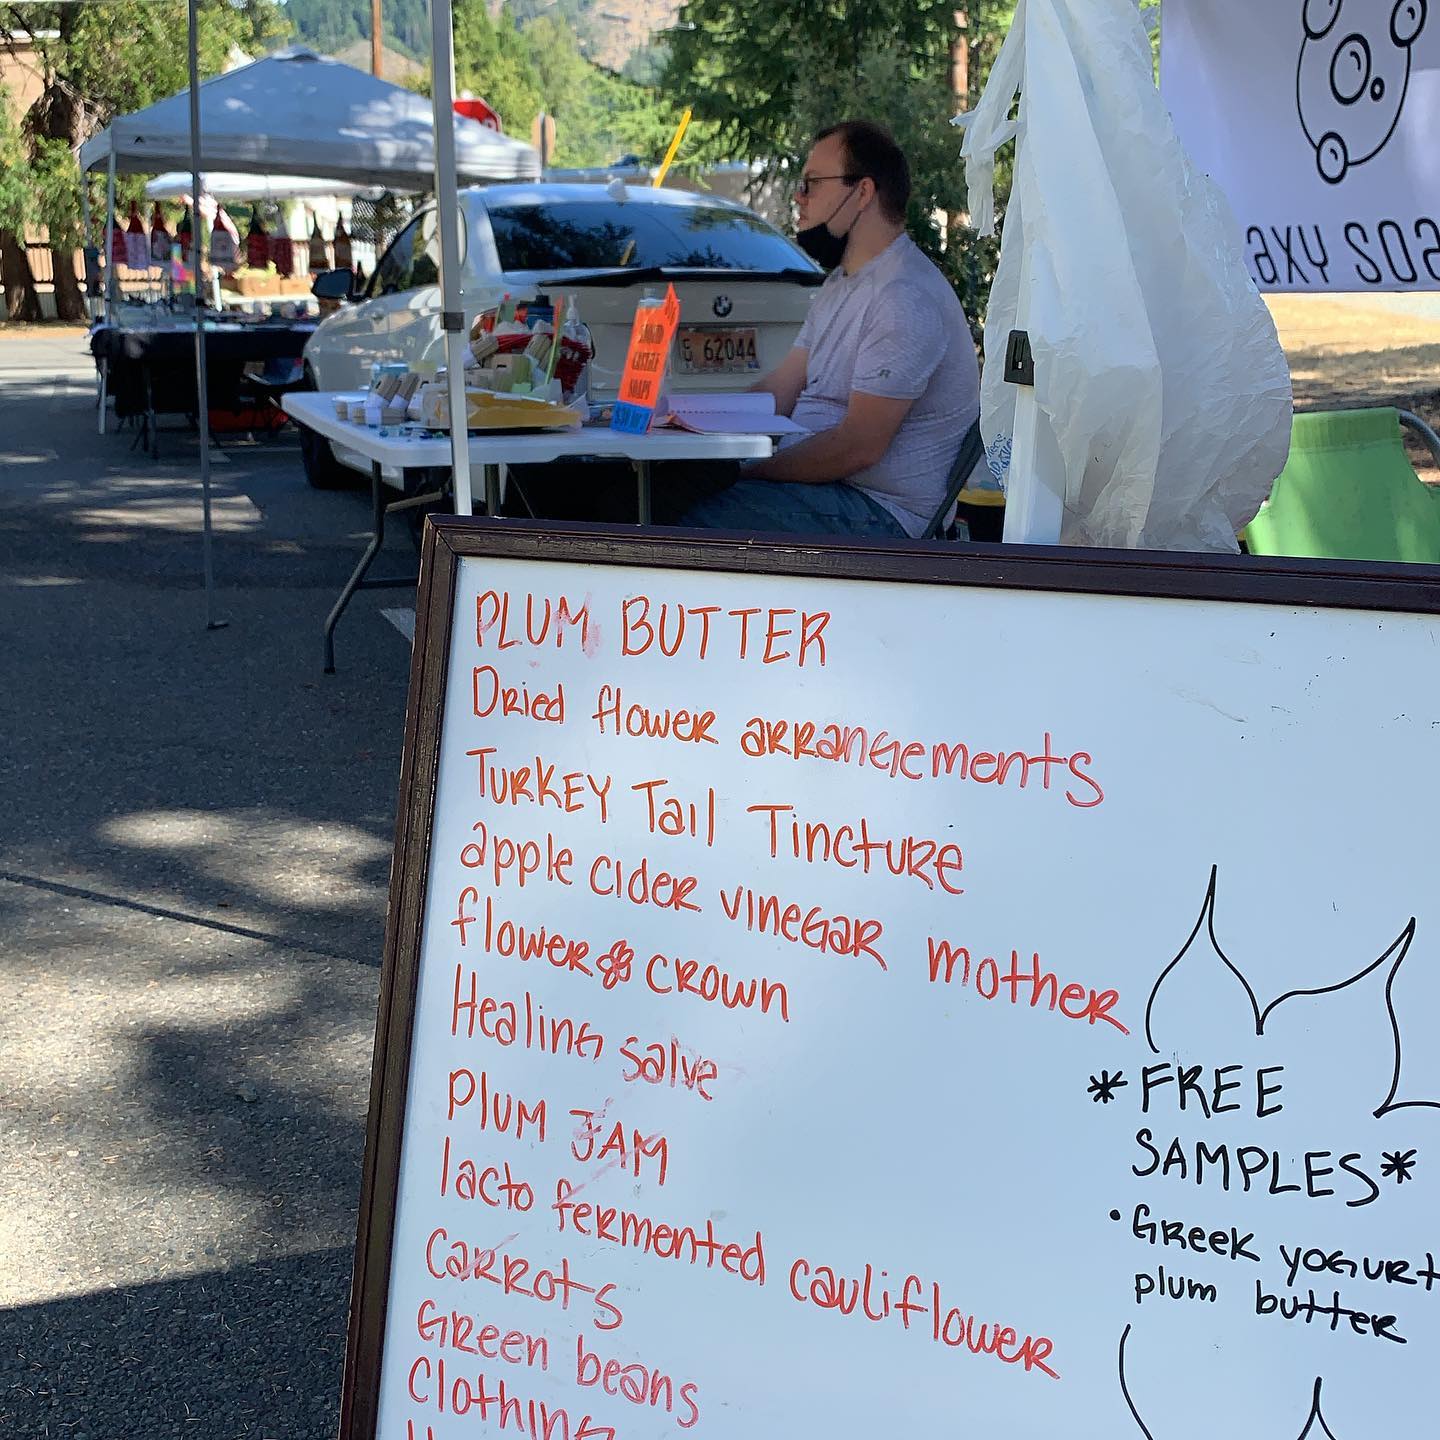 AXY SOA
62044
LIQUID
CASTILE
SOAPS
PLUM BUTTER
DRied floweR aRRanGements
TuRKEY Tail TinctuRe
apple cideR vineGaR motheR
floweR CRown
HealinG salve
Plum JAM
lacto feRmented caulifloweR
CaRRots
GReen beans
ClothinG
*FREE
SAMPLES*
• GReek yoGuRt
plum butteR